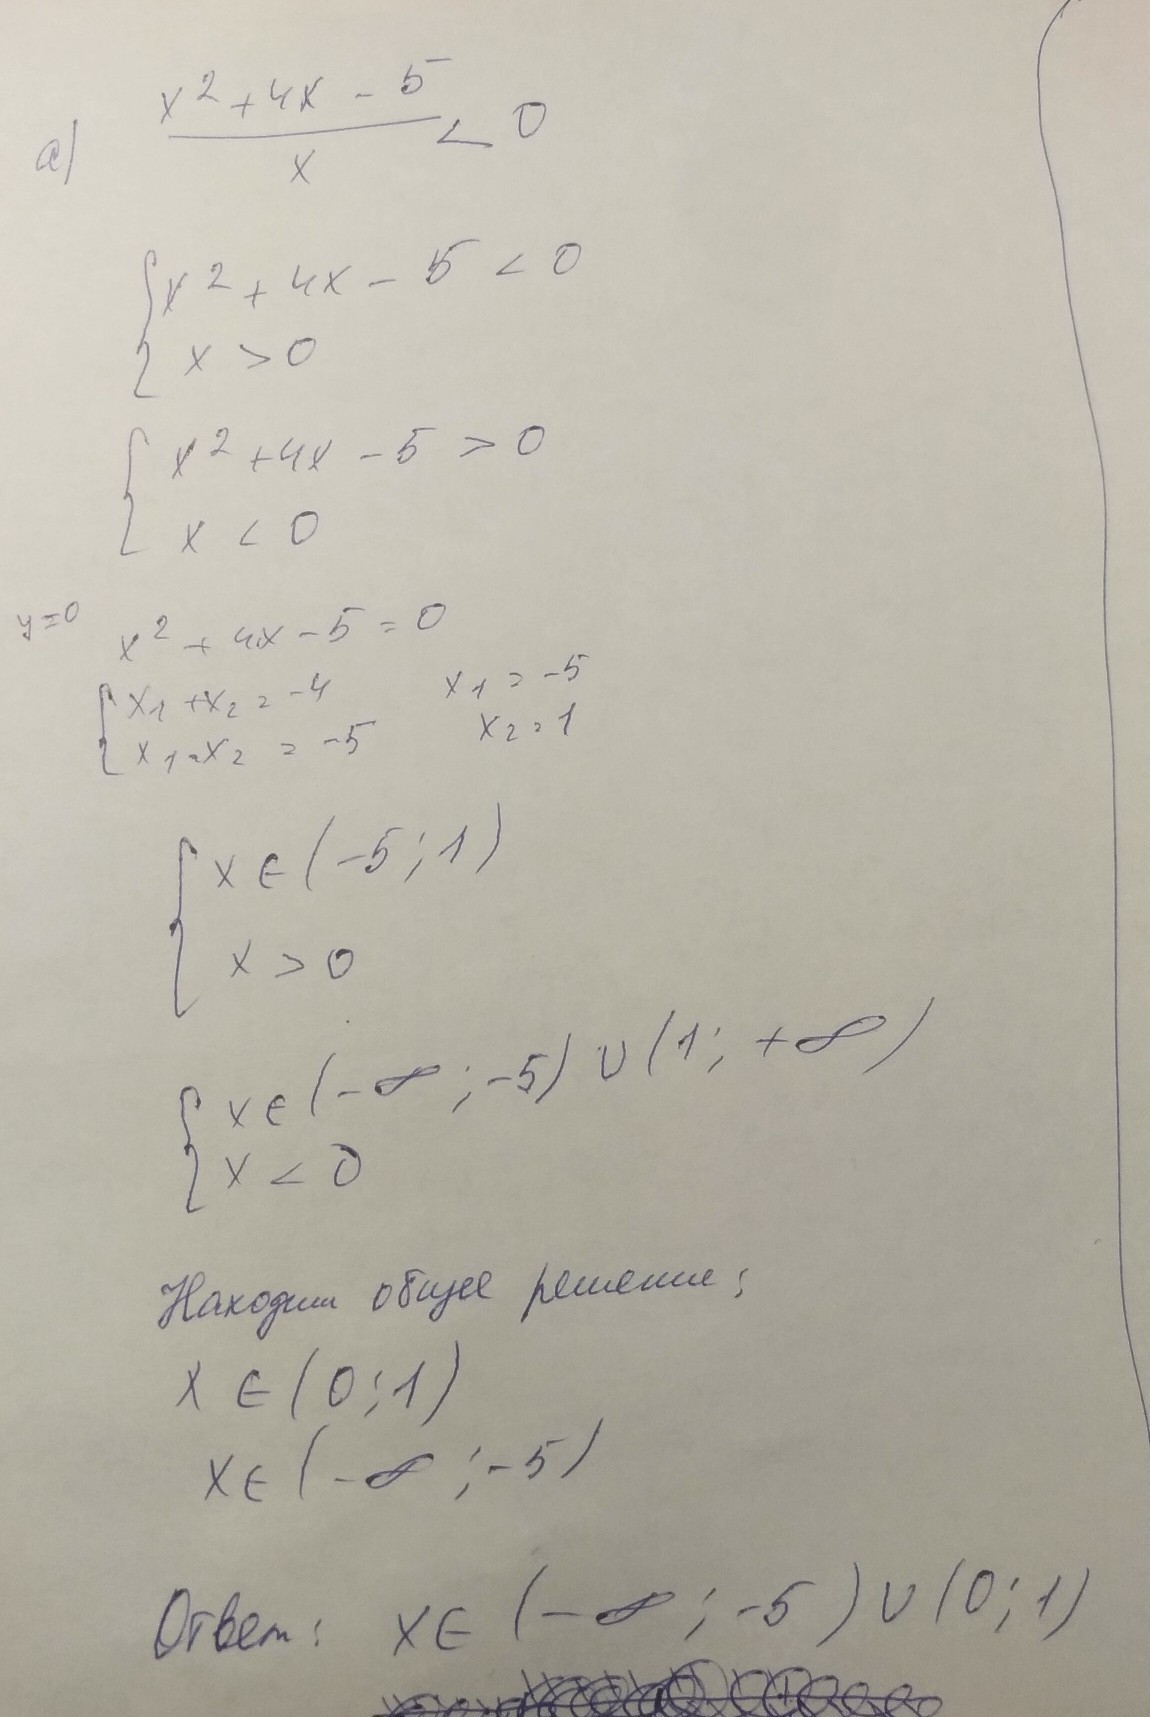 а) (x² + 4x - 5) / x < 0
{ x² + 4x - 5 < 0
x > 0
{ x² + 4x - 5 > 0
x < 0
y = 0 x² + 4x - 5 = 0
{ x₁ + x₂ = -4 x₁ = -5
x₁ · x₂ = -5 x₂ = 1
{ x ∈ (-5; 1)
x > 0
{ x ∈ (-∞; -5) ∪ (1; +∞)
x < 0
Находим общее решение:
x ∈ (0; 1)
x ∈ (-∞; -5)
Ответ: x ∈ (-∞; -5) ∪ (0; 1)